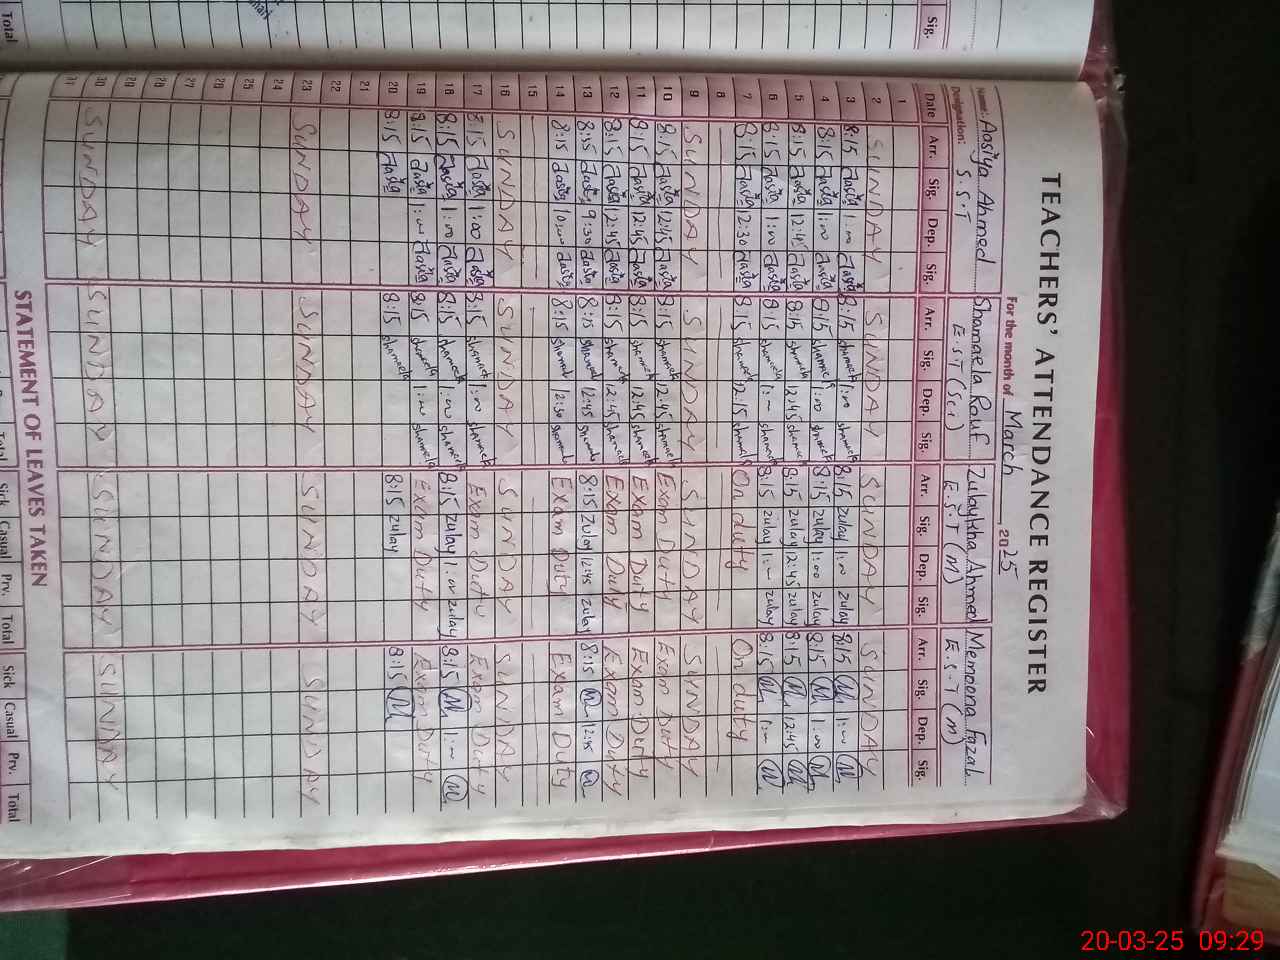 TEACHERS' ATTENDANCE REGISTER
For the month of March, 2025
Name: Aasiya Ahmed Shamaela Rauf Zulaykha Ahmed Memoona Fazal
Designation: S.S.T E.S.T (Sci) E.S.T (M) E.S.T (M)
Date Arr. Sig. Dep. Sig. Arr. Sig. Dep. Sig. Arr. Sig. Dep. Sig. Arr. Sig. Dep. Sig.
1
2 SUNDAY SUNDAY SUNDAY SUNDAY
3 8:15 Aasiya 1:00 Aasiya 8:15 Shamaela 1:00 Shamaela 8:15 Zulay 1:00 Zulay 8:15 M 1:00 M
4 8:15 Aasiya 1:00 Aasiya 8:15 Shamaela 1:00 Shamaela 8:15 Zulay 1:00 Zulay 8:15 M 1:00 M
5 8:15 Aasiya 12:45 Aasiya 8:15 Shamaela 12:45 Shamaela 8:15 Zulay 12:45 Zulay 8:15 M 12:45 M
6 8:15 Aasiya 1:00 Aasiya 8:15 Shamaela 1:00 Shamaela 8:15 Zulay 1:00 Zulay 8:15 M 1:00 M
7 8:15 Aasiya 12:30 Aasiya 8:15 Shamaela 12:15 Shamaela On duty On duty
8
9 SUNDAY SUNDAY SUNDAY SUNDAY
10 8:15 Aasiya 12:45 Aasiya 8:15 Shamaela 12:45 Shamaela Exam Duty Exam Duty
11 8:15 Aasiya 12:45 Aasiya 8:15 Shamaela 12:45 Shamaela Exam Duty Exam Duty
12 8:15 Aasiya 12:45 Aasiya 8:15 Shamaela 12:45 Shamaela Exam Duty Exam Duty
13 Aasiya 9:30 Aasiya 8:15 Shamaela 12:45 Shamaela 8:15 Zulay 12:45 Zulay 8:15 M 12:45 M
14 8:15 Aasiya 10:00 Aasiya 8:15 Shamaela 12:30 Shamaela Exam Duty Exam Duty
15
16 SUNDAY SUNDAY SUNDAY SUNDAY
17 8:15 Aasiya 1:00 Aasiya 8:15 Shamaela 1:00 Shamaela Exam Duty Exam Duty
18 8:15 Aasiya 1:00 Aasiya 8:15 Shamaela 1:00 Shamaela 8:15 Zulay 1:00 Zulay 8:15 M 1:00 M
19 8:15 Aasiya 1:00 Aasiya 8:15 Shamaela 1:00 Shamaela Exam Duty Exam Duty
20 8:15 Aasiya 8:15 Shamaela 8:15 Zulay 8:15 M
21
22
23 SUNDAY SUNDAY SUNDAY SUNDAY
24
25
26
27
28
29
30 SUNDAY SUNDAY SUNDAY SUNDAY
31
STATEMENT OF LEAVES TAKEN
Total Sick Casual Prv. Total Sick Casual Prv. Total
Sig.
Total
20-03-25 09:29